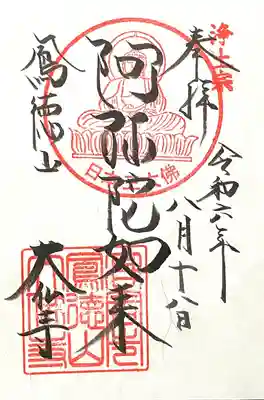 浄土宗
奉拝
令和六年
八月十八日
阿弥陀如来
日本三大佛
鳳徳山
大仏寺
鳳徳山